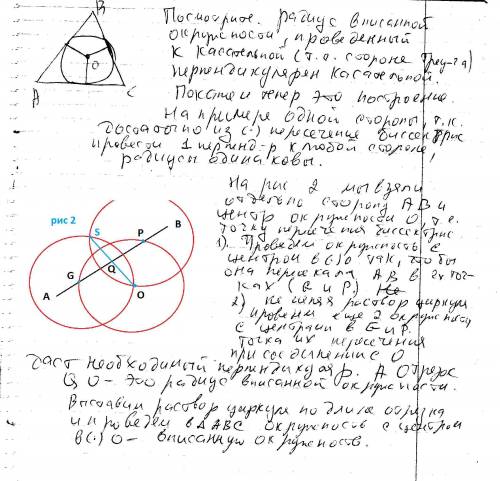 B
O
A
C
Посмотрите. радиус вписанной
окружности, проведенный
к касательной (т.е. стороне треу-ка)
перпендикулярен касательной.
Покажем теперь это построение.
На примере одной стороны, т.к.
достаточно из (·) пересечения биссектрис
провести 1 перпенд-р к любой стороне,
радиусы одинаковы.
рис 2
S
P
B
G
Q
A
O
На рис 2 мы взяли
отдельно сторону AB и
центр окружности O, т.е.
точку пересечения биссектрис.
1). Проведем окружность с
центром в (·) O так, чтобы
она пересекала AB в 2х точ-
ках (G и P).
2) не меняя раствор циркуля
проведем еще 2 окружности
с центрами в G и P.
точка их пересечения
при соединении с O
даст необходимый перпендикуляр. А отрезок
QO - это радиус вписанной окружности.
Выставим раствор циркуля по длине отрезка
и проведем в ΔABC окружность с центром
в (·) O - вписанную окружность.